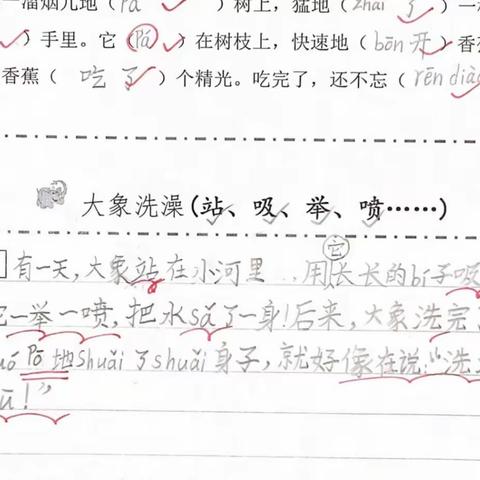 一溜烟儿地（pá ✓）树上，猛地（zhāi 了）一
✓）手里。它（pá ✓）在树枝上，快速地（bōn 开✓）香
香蕉（吃了✓）个精光。吃完了，还不忘（rēn diào
大象洗澡(站、吸、举、喷……)
有一天，大象站在小河里，用它长长的bí子吸
一举一喷，把水sǎ了一身！后来，大象洗完
pō 地shuǎi了shuǎi身子，就好像在说：“洗
！”